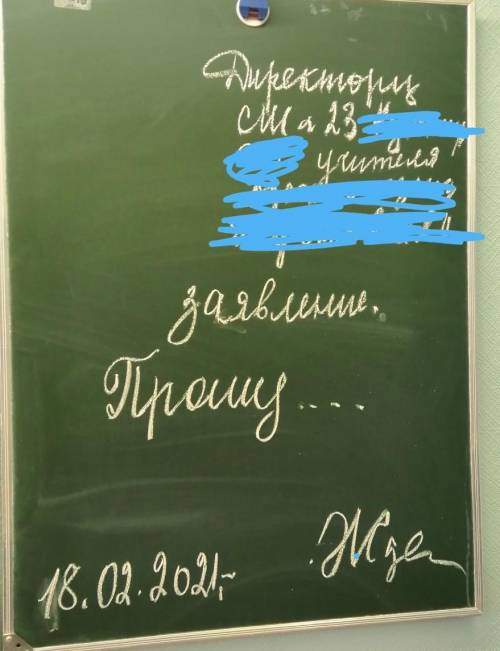 Директору
СШ № 23
учителя
заявление.
Прошу ....
18.02.2021